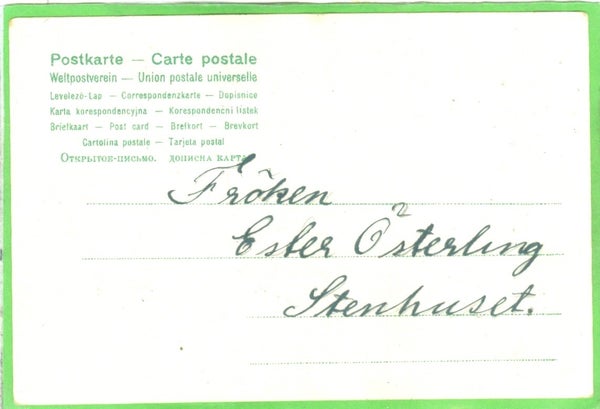 Postkarte — Carte postale
Weltpostverein — Union postale universelle
Levelező-Lap — Correspondenzkarte — Dopisnice
Karta korespondencyjna — Korespondencni listek
Briefkaart — Post card — Brefkort — Brevkort
Cartolina postale — Tarjeta postal
Открытое-письмо. дописна карта
Fröken
Ester Österling
Stenhuset.